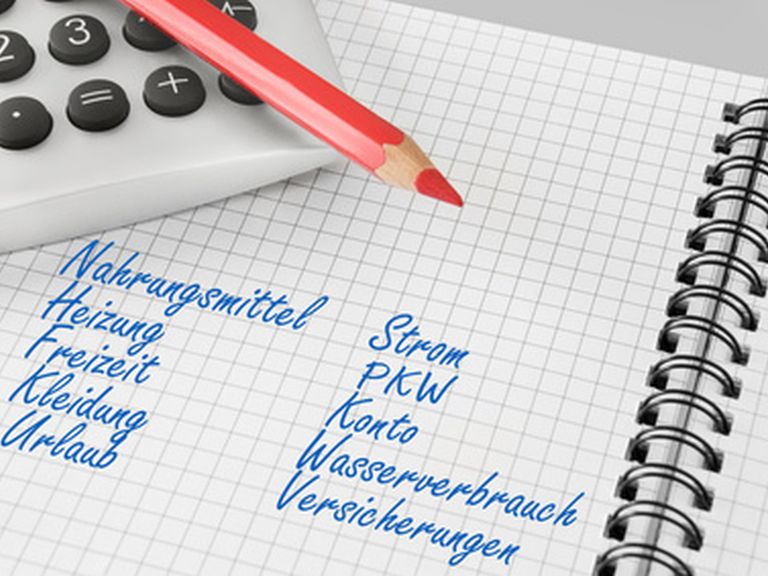 2 3
. = +
Nahrungsmittel
Heizung
Freizeit
Kleidung
Urlaub
Strom
PKW
Konto
Wasserverbrauch
Versicherungen